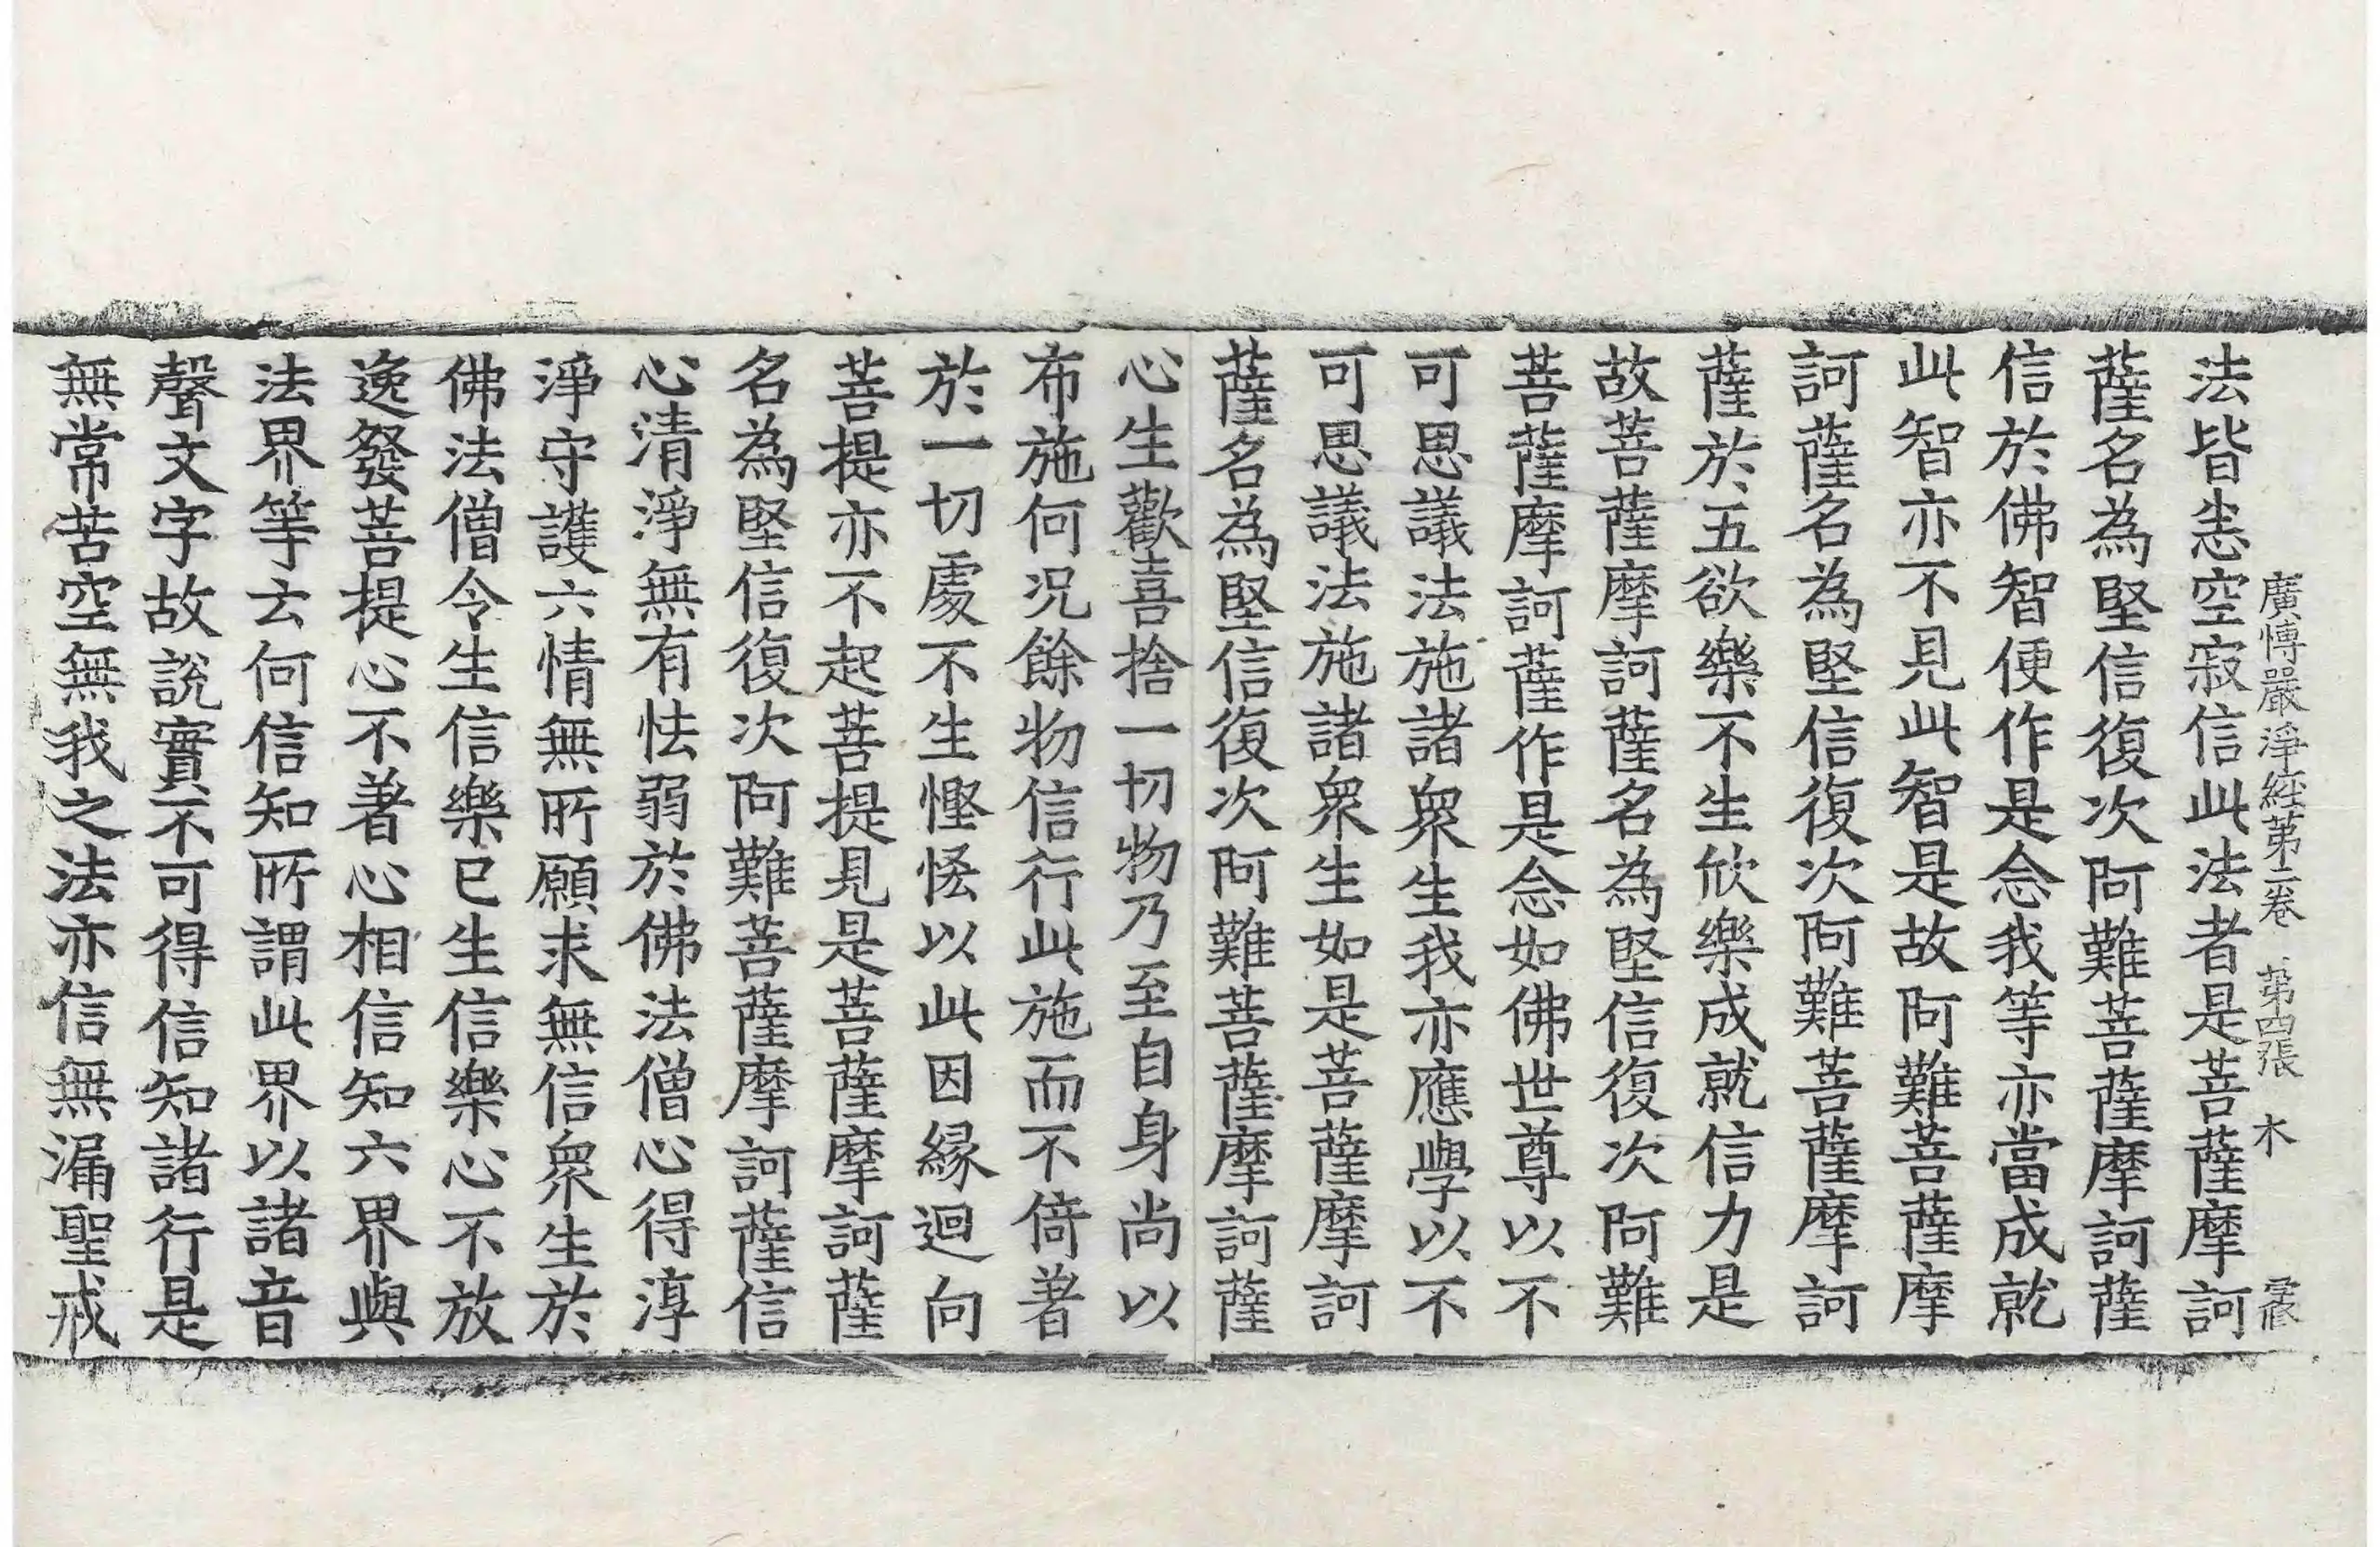 廣愽嚴淨經第二卷 第四張 木
法皆悉空寂信此法者是菩薩摩訶
薩名為堅信復次阿難菩薩摩訶薩
信於佛智便作是念我等亦當成就
此智亦不見此智是故阿難菩薩摩
訶薩名為堅信復次阿難菩薩摩訶
薩於五欲樂不生欣樂成就信力是
故菩薩摩訶薩名為堅信復次阿難
菩薩摩訶薩作是念如佛世尊以不
可思議法施諸衆生我亦應學以不
可思議法施諸衆生如是菩薩摩訶
薩名為堅信復次阿難菩薩摩訶薩
心生歡喜捨一切物乃至自身尚以
布施何況餘物信行此施而不倚著
於一切處不生慳悋以此因緣迴向
菩提亦不起菩提見是菩薩摩訶薩
名為堅信復次阿難菩薩摩訶薩信
心清淨無有怯弱於佛法僧心得淳
淨守護六情無所願求無信衆生於
佛法僧令生信樂已生信樂心不放
逸發菩提心不著心相信知六界與
法界等云何信知所謂此界以諸音
聲文字故說實不可得信知諸行是
無常苦空無我之法亦信無漏聖戒